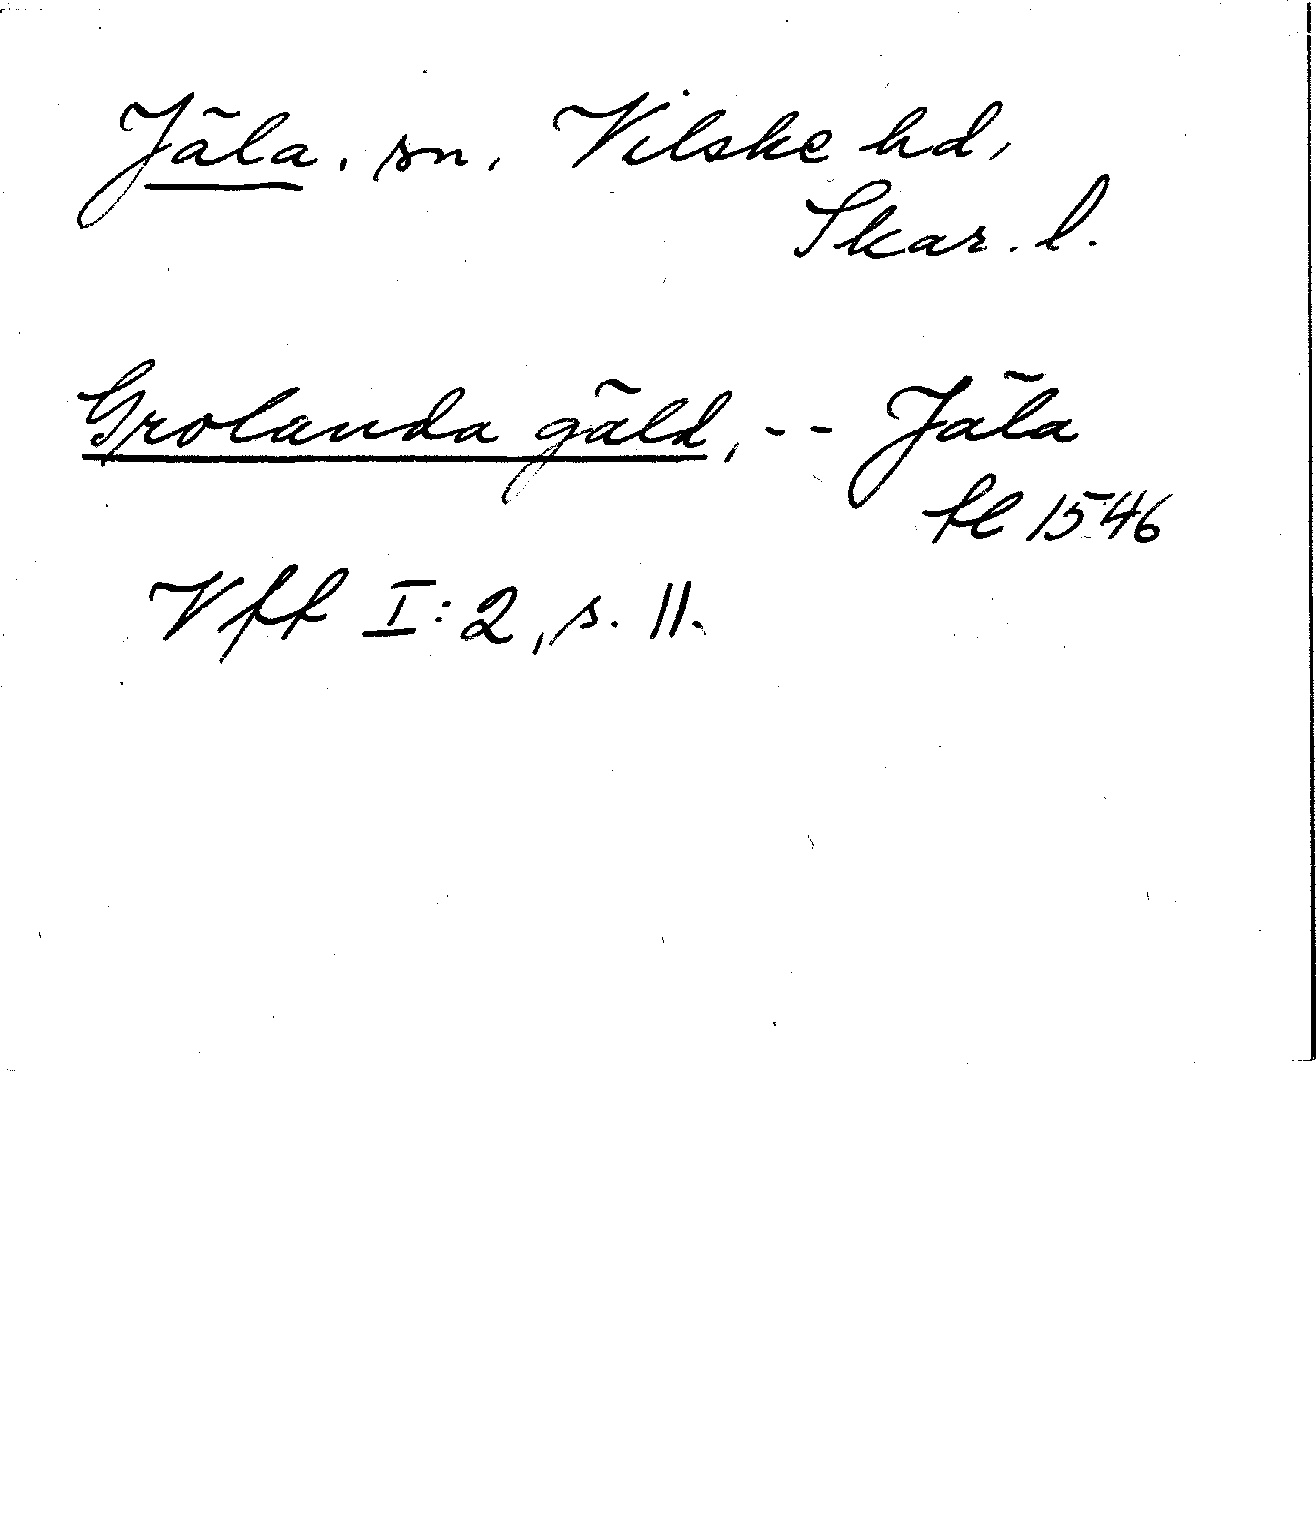 Jäla, sn, Vilske hd,
Skar. l.
Grolanda gäld, -- Jäla
fl 1546
Vff I:2, s. 11.